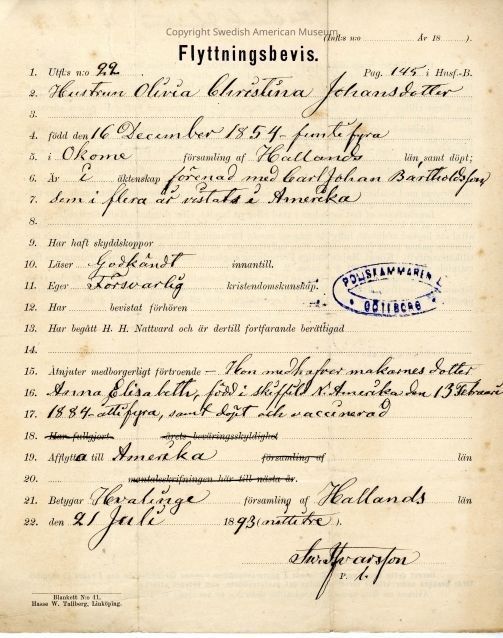 Copyright Swedish American Museum
(Inft:s n:o År 18 ).
Flyttningsbevis.
1. Utft:s n:o 22 . Pag. 145 i Husf.-B.
2. Hustrun Olivia Christina Johansdotter
3.
4. född den 16 December 1854 - femtifyra
5. i Okome församling af Hallands län samt döpt;
6. Är i äktenskap förenad med Carl Johan Bartholdsson,
7. som i flera år vistats i Amerika
8.
9. Har haft skyddskoppor
10. Läser Godkändt innantill.
11. Eger Försvarlig kristendomskunskap.
POLISKAMMAREN
GÖTEBORG
12. Har bevistat förhören
13. Har begått H. H. Nattvard och är dertill fortfarande berättigad
14.
15. Åtnjuter medborgerligt förtroende – Hon medhafver makarnes dotter
16. Anna Elisabeth, född i N. Amerika den 13 Februari
17. 1884 åttifyra, samt döpt och vaccinerad
18. Har fullgjort årets beväringsskyldighet
19. Afflytta till Amerika församling af län
20. mantalsskrifningen här till nästa år.
21. Betygar Hvalinge församling af Hallands län
22. den 21 Juli 1893 (nittitre).
Ivarsson
P. l.
Blankett N:o 41.
Hasse W. Tullberg, Linköping.